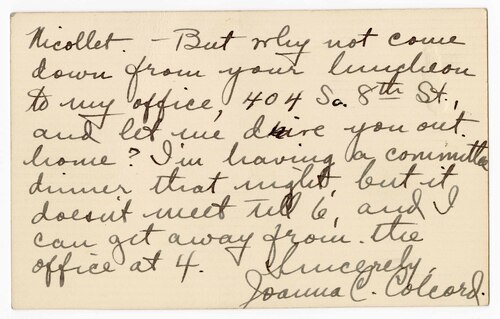 Nicollet. - But why not come
down from your luncheon
to my office, 404 So. 8th St.,
and let me drive you out
home? I'm having a committee
dinner that night, but it
doesn't meet till 6, and I
can get away from the
office at 4.
Sincerely,
Joanna C. Colcord.